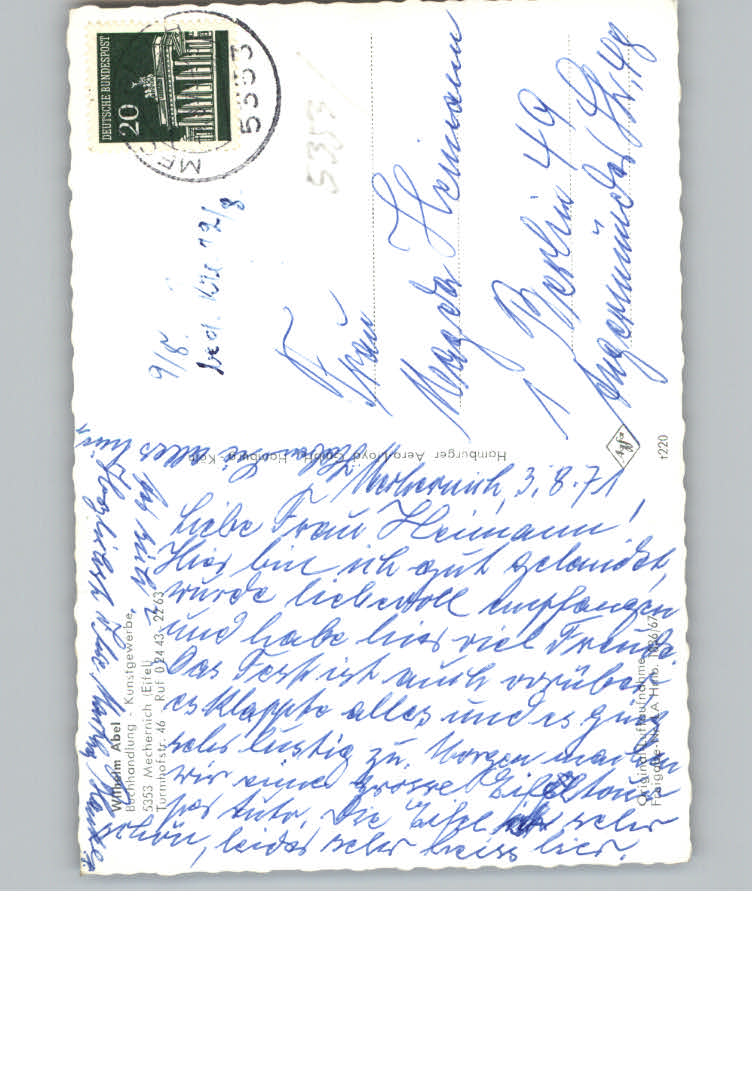 DEUTSCHE BUNDESPOST
20
5353
5353
9/8.
12/8.
Frau
Magda Heimann
1 Berlin 49
Angermünder Str. 48
Hamburger Aero-Lloyd GmbH, Hamburg
Agfa
t220
Mechernich, 3.8.71
Liebe Frau Heimann!
Hier bin ich gut gelandet,
wurde liebevoll empfangen
und habe hier viel Freude.
Das Fest ist auch vorüber.
es klappte alles und es ging
sehr lustig zu. Morgen machen
wir eine grosse Eifeltour
per Auto. Die Eifel ist sehr
schön, leider sehr heiss hier.
Wilhelm Abel
Buchhandlung - Kunstgewerbe
5353 Mechernich (Eifel)
Turmhofstr. 46 - Ruf 0 24 43 - 22 63
Original-Luftaufnahme
Herzlichst Ihre